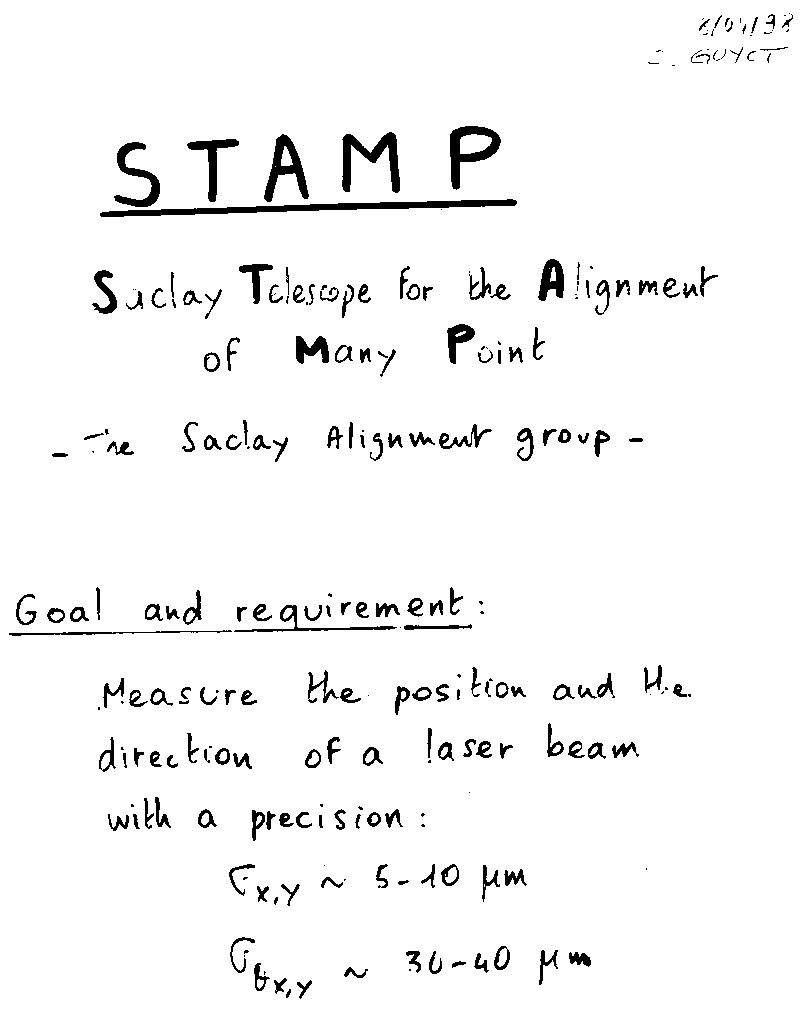 8/04/98
C. GUYOT
STAMP
Saclay Telescope for the Alignment
of Many Point
- The Saclay Alignment group -
Goal and requirement :
Measure the position and the
direction of a laser beam
with a precision :
σx,y ~ 5-10 μm
σθx,y ~ 30-40 μm